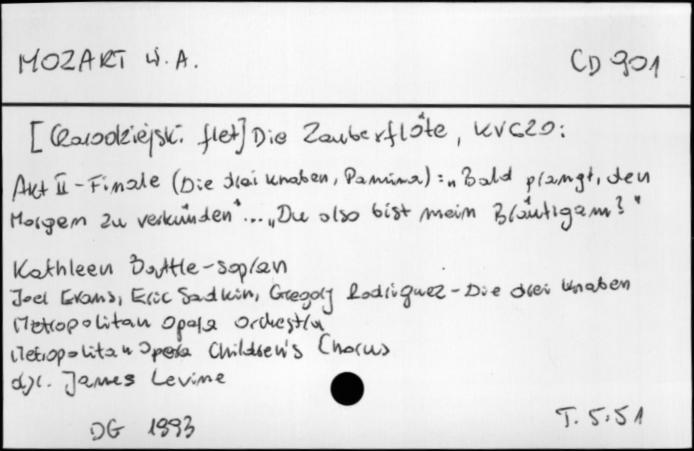 MOZART W. A. CD 901
[Czarodziejski flet] Die Zauberflöte, KV620:
Akt II - Finale (Die drei Knaben, Pamina): „Bald prangt, den
Morgen zu verkünden"... „Du also bist mein Bräutigam?"
Kathleen Battle - sopran
Joel Evans, Eric Sadkin, Gregory Rodriguez - Die drei Knaben
Metropolitan Opera Orchestra
Metropolitan Opera Children's Chorus
dyr. James Levine
DG 1993 T. 5:51